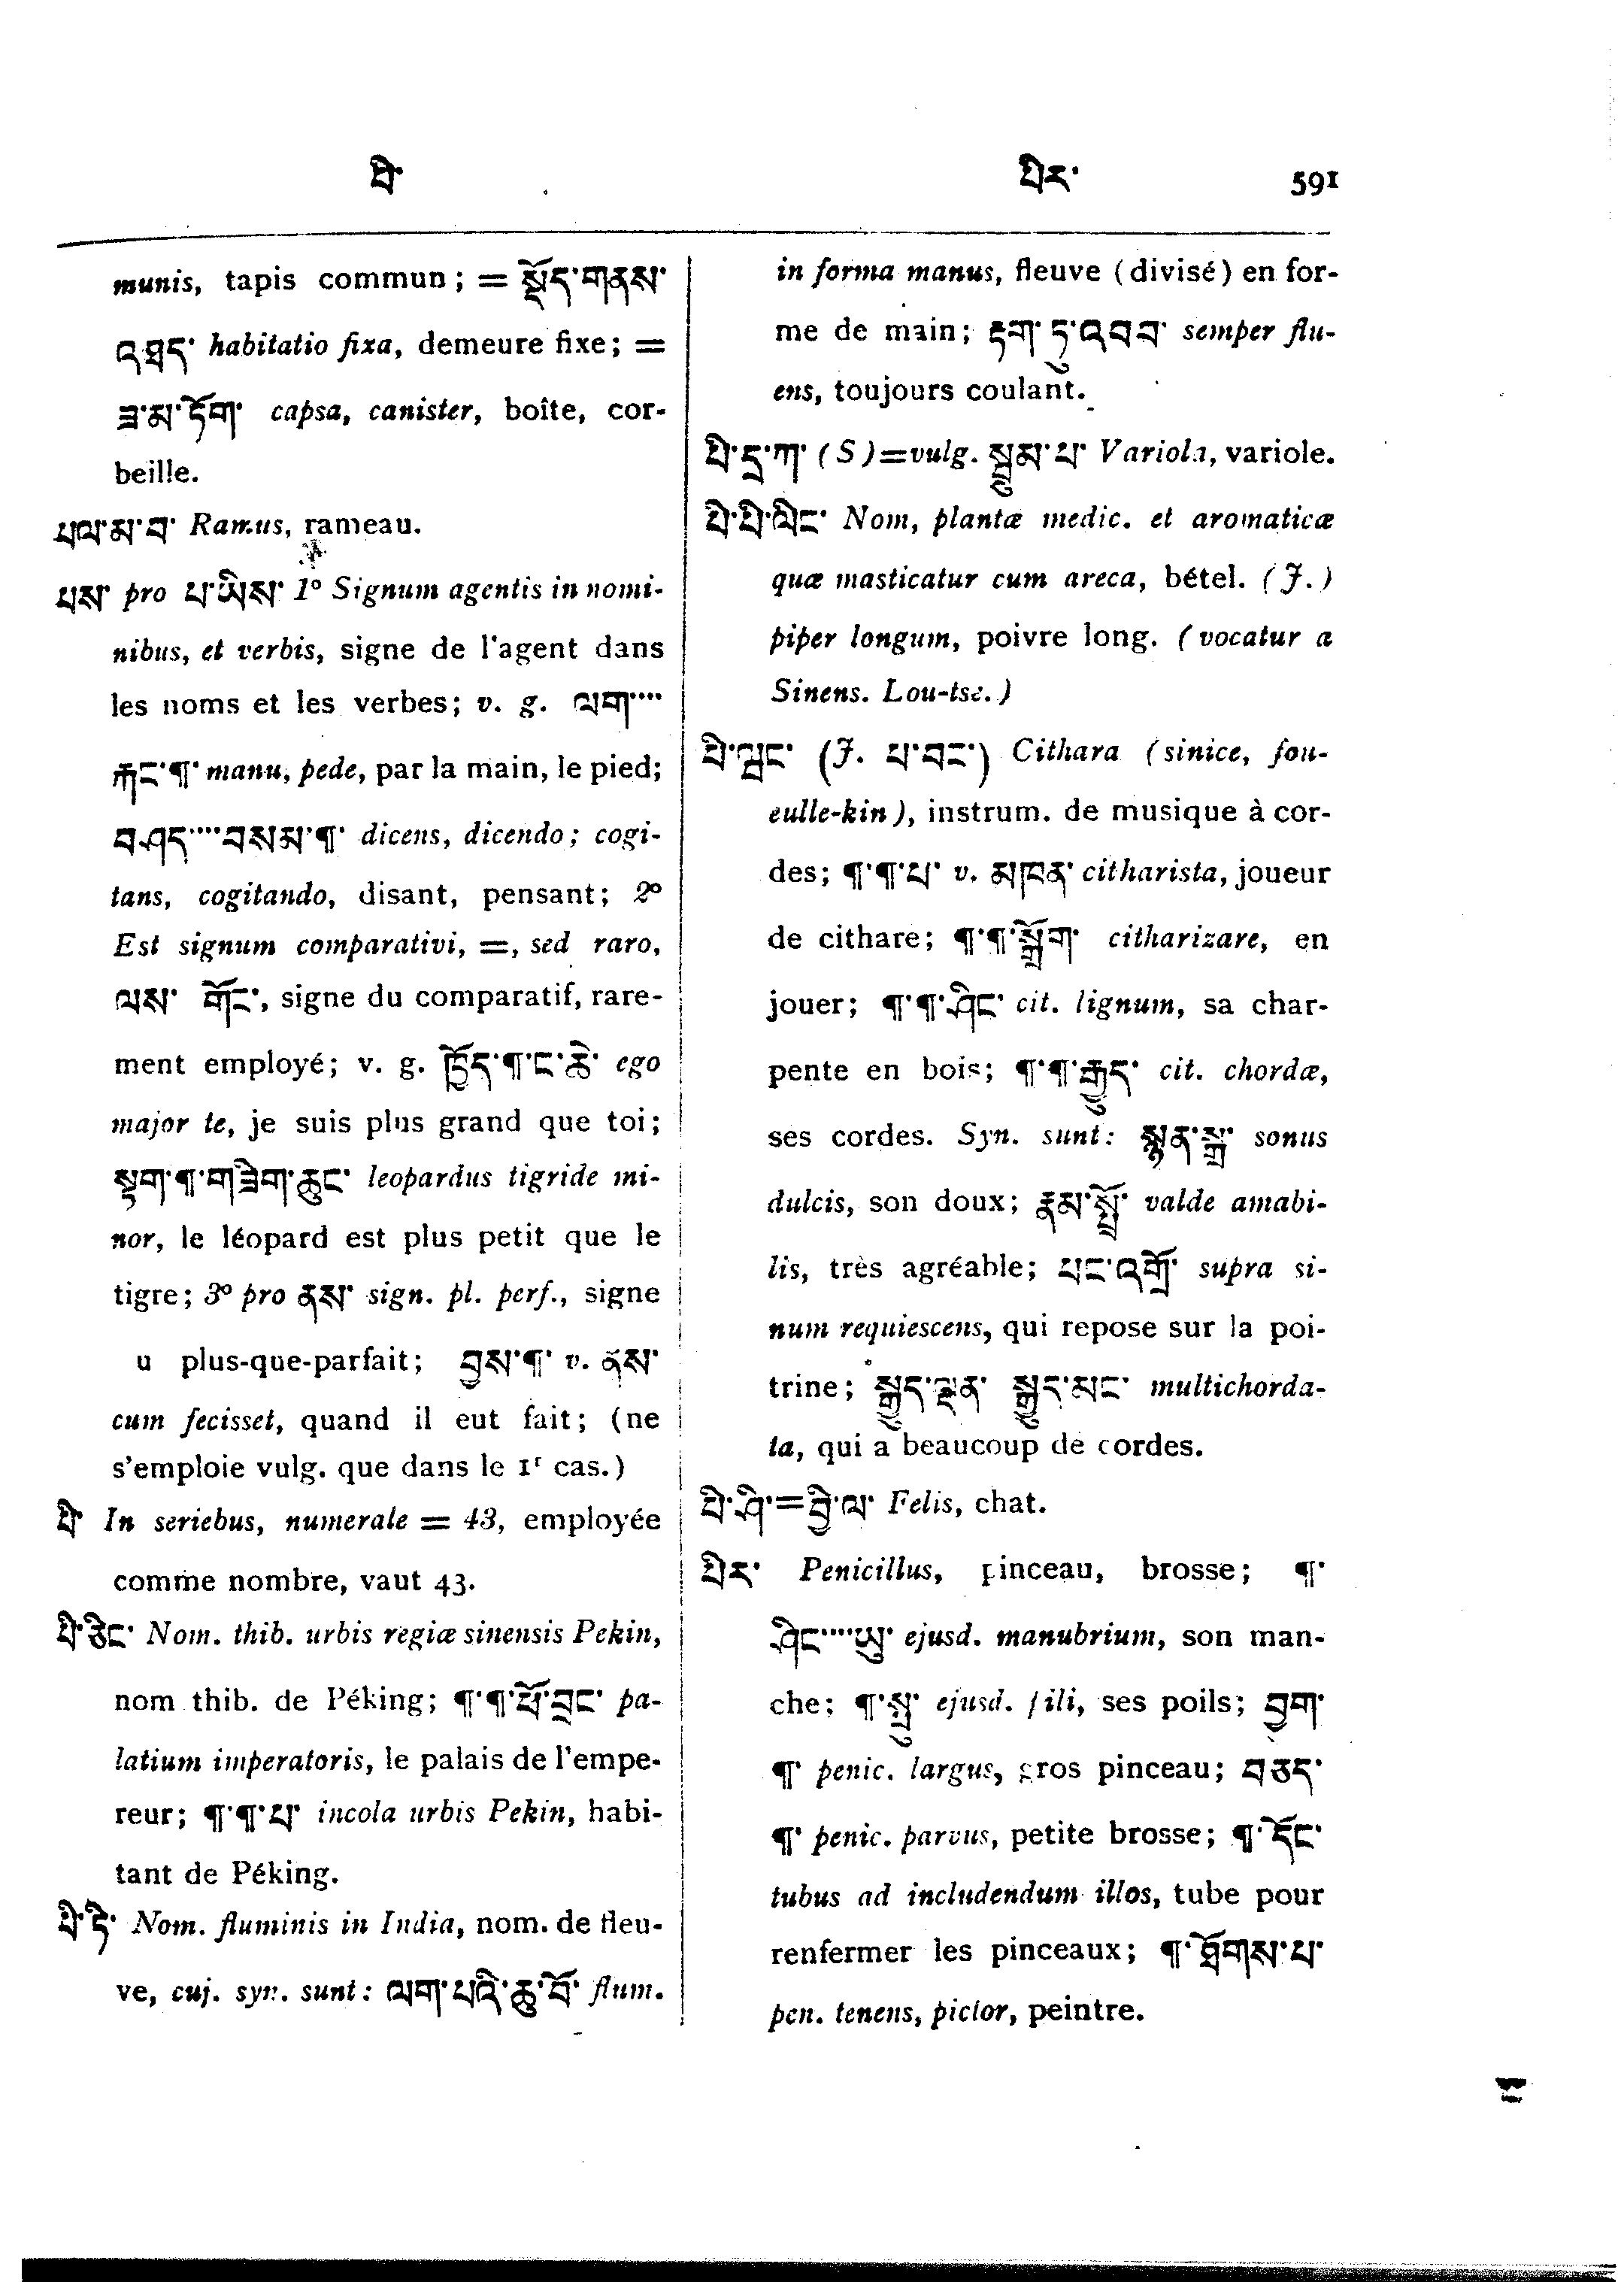 པི་
པིར་ 591
munis, tapis commun ; = སྡོད་གནས་
འཐད་ habitatio fixa, demeure fixe; =
ཟ་མ་ཏོག་ capsa, canister, boîte, cor-
beille.
པལ་མ་བ་ Ramus, rameau.
པས་ pro པ་ཡིས་ 1º Signum agentis in nomi-
nibus, et verbis, signe de l'agent dans
les noms et les verbes; v. g. ལག་····
རྐང་¶་ manu, pede, par la main, le pied;
བཤད་····བསམ་¶་ dicens, dicendo; cogi-
tans, cogitando, disant, pensant; 2º
Est signum comparativi, =, sed raro,
ལས་ གོང་, signe du comparatif, rare-
ment employé; v. g. ཁྱོད་¶་ང་ཆེ་ ego
major te, je suis plus grand que toi;
སྟག་¶་གཟིག་ཆུང་ leopardus tigride mi-
nor, le léopard est plus petit que le
tigre; 3º pro ནས་ sign. pl. perf., signe
u plus-que-parfait; བྱས་¶་ v. ནས་
cum fecisset, quand il eut fait; (ne
s'emploie vulg. que dans le 1r cas.)
པི་ In seriebus, numerale = 43, employée
comme nombre, vaut 43.
པི་ཅིང་ Nom. thib. urbis regiæ sinensis Pekin,
nom thib. de Péking; ¶་¶་ཕོ་བྲང་ pa-
latium imperatoris, le palais de l'empe-
reur; ¶་¶་པ་ incola urbis Pekin, habi-
tant de Péking.
པི་ཏི་ Nom. fluminis in India, nom. de fleu-
ve, cuj. syn. sunt: ལག་པའི་ཆུ་བོ་ flum.
in forma manus, fleuve (divisé) en for-
me de main; རྟག་ ཏུ་འབབ་ semper flu-
ens, toujours coulant.
པི་ཏྲ་ཀ་ (S)=vulg. སྦྲུམ་པ་ Variola, variole.
པི་པི་ལིང་ Nom, plantæ medic. et aromaticæ
quæ masticatur cum areca, bétel. (J.)
piper longum, poivre long. (vocatur a
Sinens. Lou-tse.)
པི་ལྦང་ (J. པ་བང་) Cithara (sinice, fou-
eulle-kin), instrum. de musique à cor-
des; ¶་¶་པ་ v. མཁན་ citharista, joueur
de cithare; ¶་¶་སྒྲོག་ citharizare, en
jouer; ¶་¶་ཤིང་ cit. lignum, sa char-
pente en bois; ¶་¶་རྒྱུད་ cit. chordæ,
ses cordes. Syn. sunt: སྙན་སྒྲ་ sonus
dulcis, son doux; རྣམ་སྤྲོ་ valde amabi-
lis, très agréable; པང་འགྲོ་ supra si-
num requiescens, qui repose sur la poi-
trine; སྒྱུད་ལྡན་ སྒྱུད་མང་ multichorda-
ta, qui a beaucoup de cordes.
པི་ཤི་=བྱི་ལ་ Felis, chat.
པིར་ Penicillus, pinceau, brosse; ¶་
ཤིང་····ཡུ་ ejusd. manubrium, son man-
che; ¶་སྤུ་ ejusd. fili, ses poils; བྱག་
¶་ penic. largus, gros pinceau; བཅད་
¶་ penic. parvus, petite brosse; ¶་དོང་
tubus ad includendum illos, tube pour
renfermer les pinceaux; ¶་ཐོགས་པ་
pen. tenens, pictor, peintre.